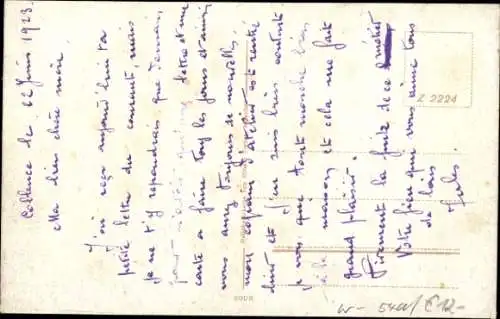 Coblence le 22 Juin 1923
Ma bien chère mère
J'ai reçu aujourd'hui ta
petite lettre du courant mais
je ne t'y repondrais que demain,
lettre et une
carte a faire tous les jours et ainsi
vous aurez toujours de nouvelles.
mon copain d'atelier est rentré
hier et j'en suis bien content
je vois que tout marche bien
à la maison et cela me fait
grand plaisir.
Vivement la fuite de ce métier
Votre fieu qui vous aime tous
de loin
Jules.
Z 2224
W - 54W/ C12-